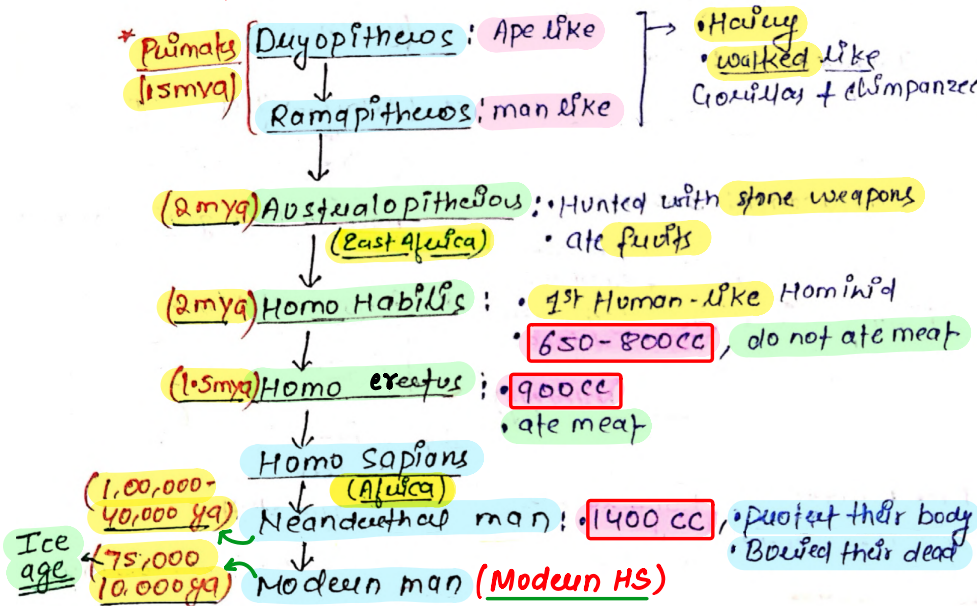 * Primates [Dryopithecus : Ape like] → • Hairy
(15mya) • walked like
Gorillas + chimpanzee
Ramapithecus : man like
(2mya) Australopithecus : • Hunted with stone weapons
(East Africa) • ate fruits
(2mya) Homo Habilis : • 1st Human-like Hominid
• 650-800cc, do not ate meat
(1.5mya) Homo erectus : • 900cc
• ate meat
Homo Sapians
(Africa)
(1,00,000-
40,000 ya) Neanderthal man : • 1400 cc, • protect their body
• Buried their dead
Ice
age
(75,000
10.000 ya) Modern man (Modern HS)